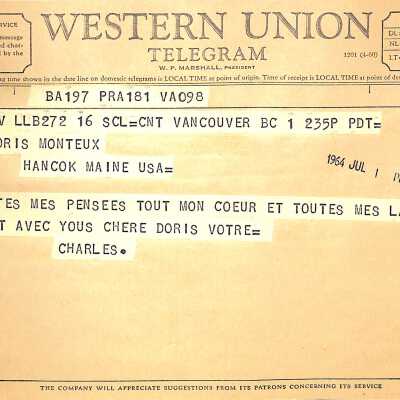 WESTERN UNION
TELEGRAM
W. P. MARSHALL, PRESIDENT
1201 (4-60)
message
DL
NL
LT
ing time shown in the date line on domestic telegrams is LOCAL TIME at point of origin. Time of receipt is LOCAL TIME at point of
BA197 PRA181 VA098
V LLB272 16 SCL=CNT VANCOUVER BC 1 235P PDT=
ORIS MONTEUX
HANCOK MAINE USA=
1964 JUL 1
TES MES PENSEES TOUT MON COEUR ET TOUTES MES LA
T AVEC YOUS CHERE DORIS VOTRE=
CHARLES.
THE COMPANY WILL APPRECIATE SUGGESTIONS FROM ITS PATRONS CONCERNING ITS SERVICE